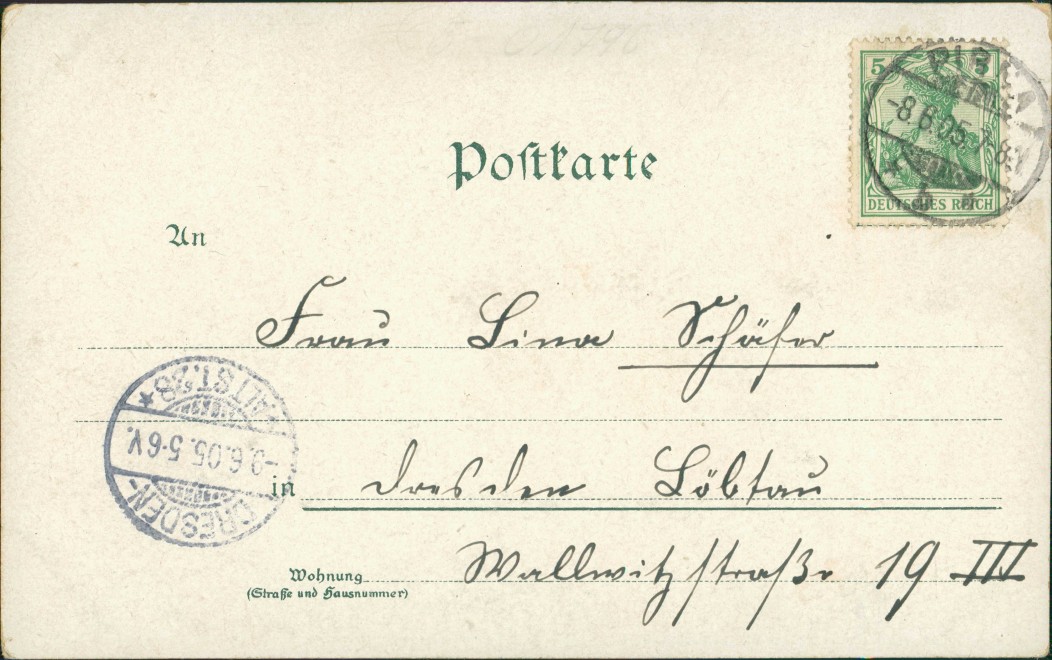 Postkarte
5 5
PIRNA
-8.6.05.
DEUTSCHES REICH
An
Frau Lina Schäfer
ALTST. 28
-9.6.05. 5-6V.
DRESDEN-
in Dresden Löbtau
Wohnung Wallwitzstraße 19 III
(Straße und Hausnummer)